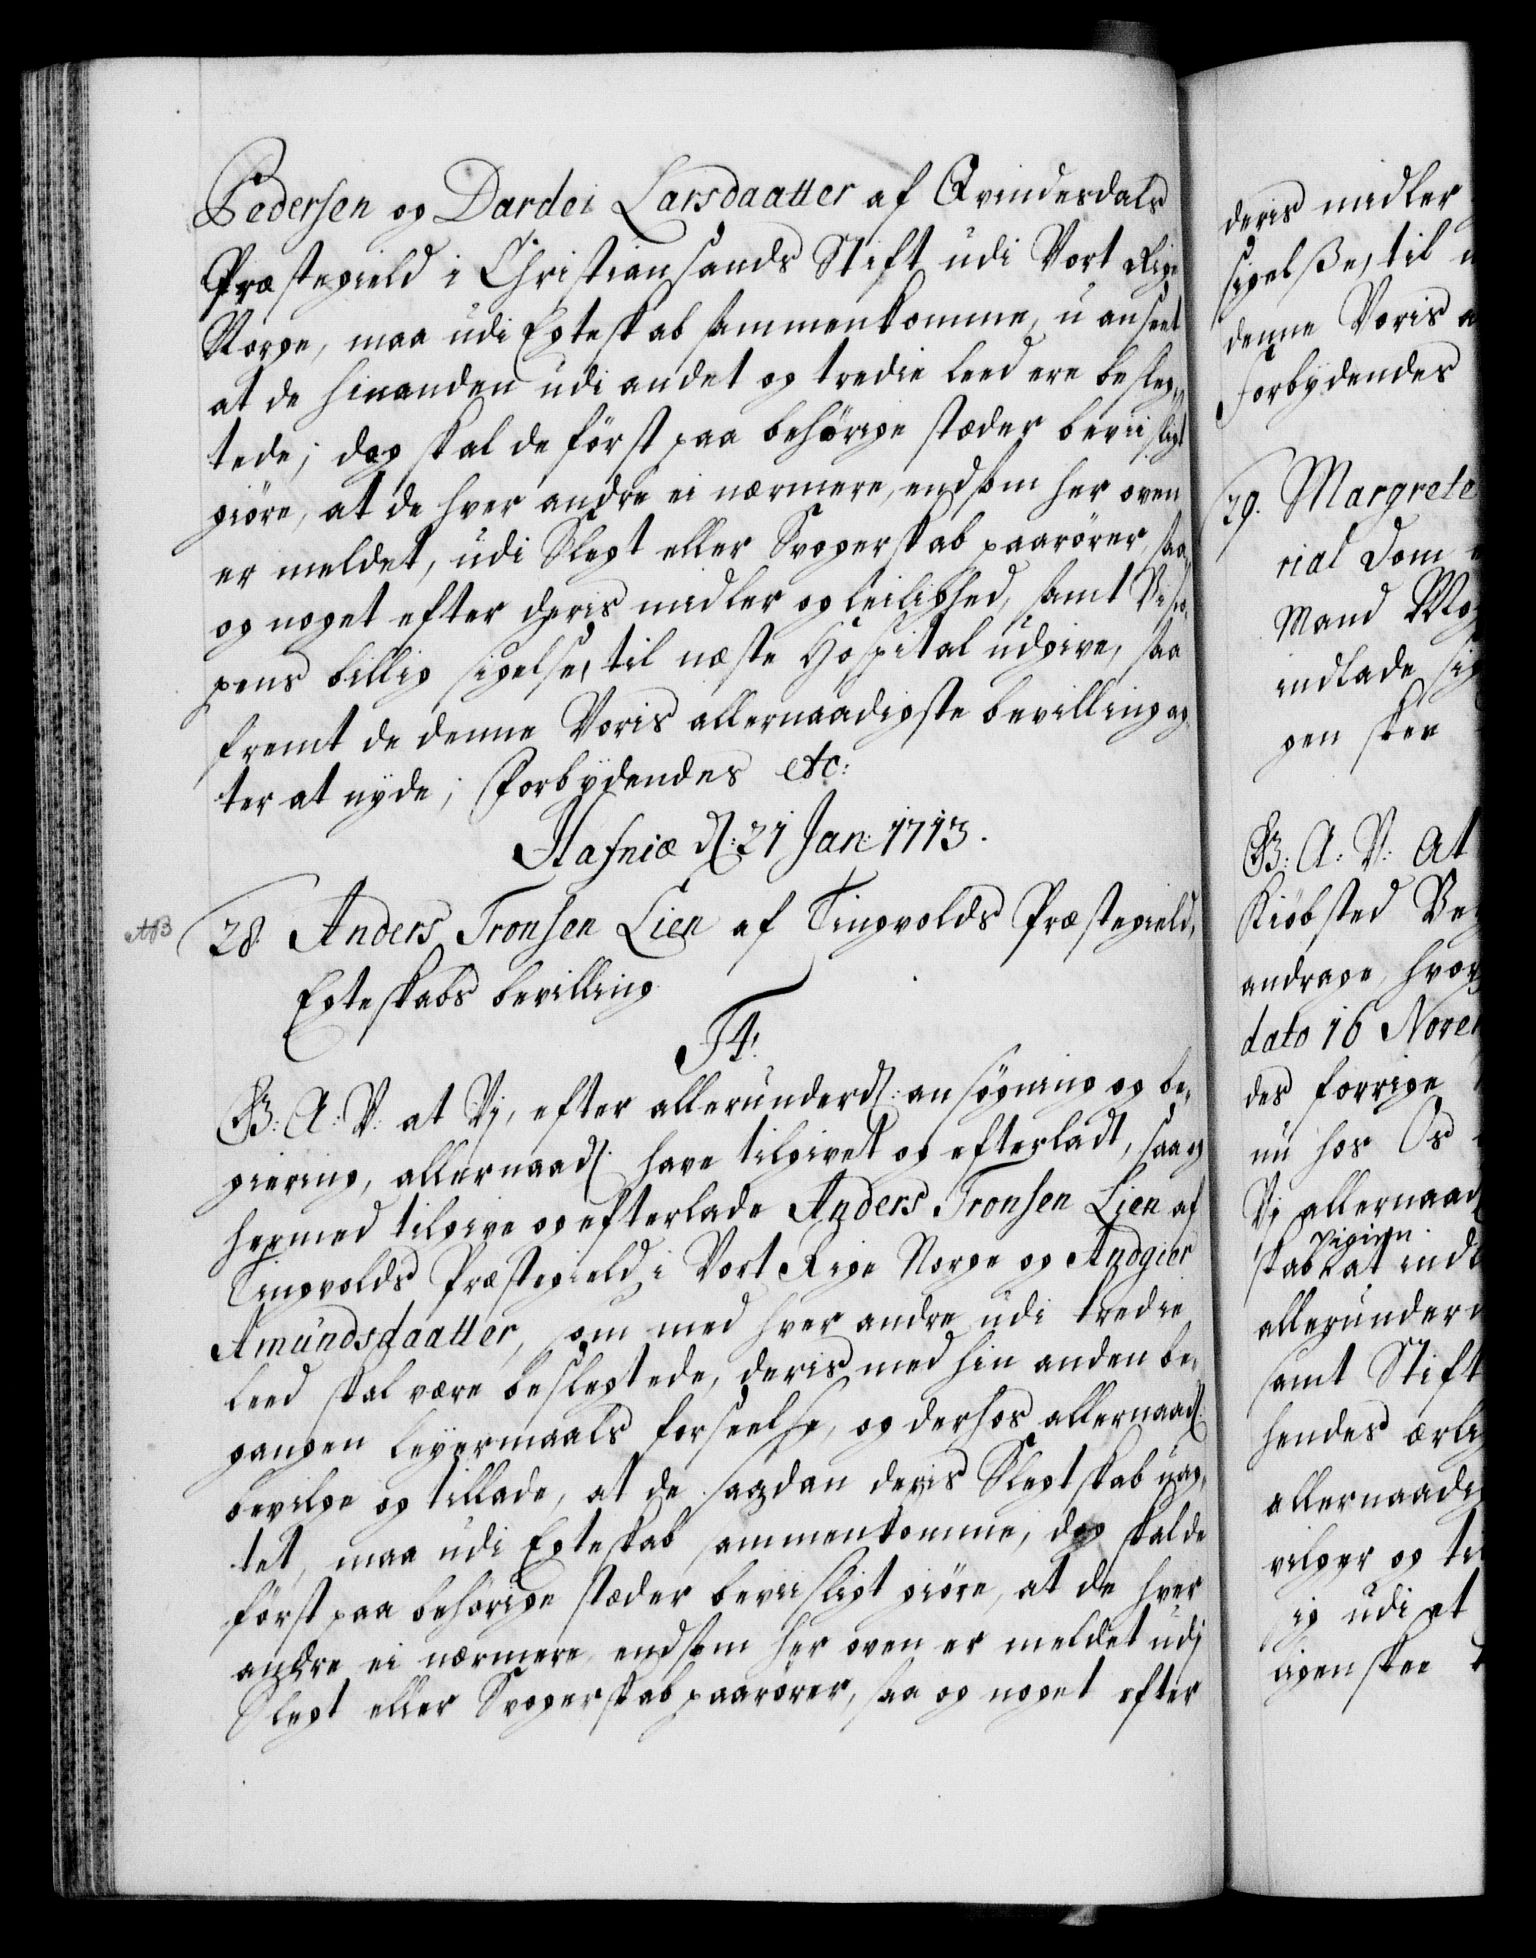 Pedersen og Dardei Larsdaatter af Qvindesdals
Præstegield i Christiansands Stift udi Vort Rige
Norge, maa udi Egteskab sammenkomme, u anseet
at de hinanden udi andet og tredie leed ere besleg,,
tede; dog skal de först paa behörige stæder beviisligt
giöre, at de hver andre ei nærmere, end som her oven
er meldet, udi Slegt eller Svogerskab paarörer, saa
og noget efter deris midler og leilighed, samt Bisco,
pens billig sigelse, til næste Hospital udgive, saa
fremt de denne Voris allernaadigste bevilling ag,
ter at nyde; Forbydendes etc:
Hafniæ d: 21 Jan: 1713.
28. Anders Tronsen Lien af Tingvolds Præstegield,
Egteskabs bevilling
F4:
G: A: V: at Vj, efter allerunderd: ansögning og be,,
giering, allernaad: have tilgivet og efterladt, saa og
hermed tilgive og efterlade Anders Tronsen Lien af
Tingvolds Præstegield i Vort Rige Norge og Andgier
Amundsdaatter, som med hver andre udi tredie
leed skal være beslegtede, deris med hin anden be,,
gangen leyermaals forseelse, og derhos allernaad:
bevilge og tillade, at de saadan deris Slegtskab uag,
tet, maa udi Egteskab sammenkomme, dog skal de
först paa behörige stæder beviisligt giöre, at de hver
andre ei nærmere end som her oven er meldet udj
Slegt eller Svogerskab paarörer, saa og noget efter
deris midler
sigelsze, til
denne Voris
Forbydendes
29. Margrete
rial Dom
Mand
indlade sig
gen skee
G: A: V: At
Kiöbsted
andrage, hvor
dato 16 Nove
des forrige
nu hos Os
Vj allernaad
pigien
skab at ind
allerunder
samt Stift
hendes ærlig
allernaadi
vilger og ti
ig udi at
ligen skee